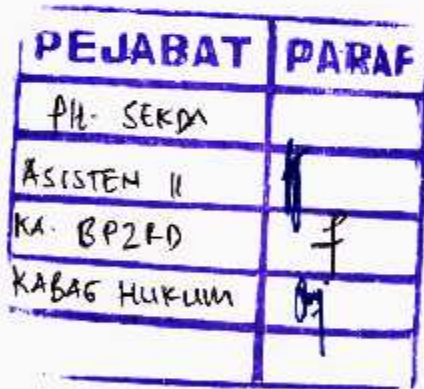 PEJABAT PARAF
PH. SEKDA
ASISTEN II
KA. BP2RD
KABAG HUKUM